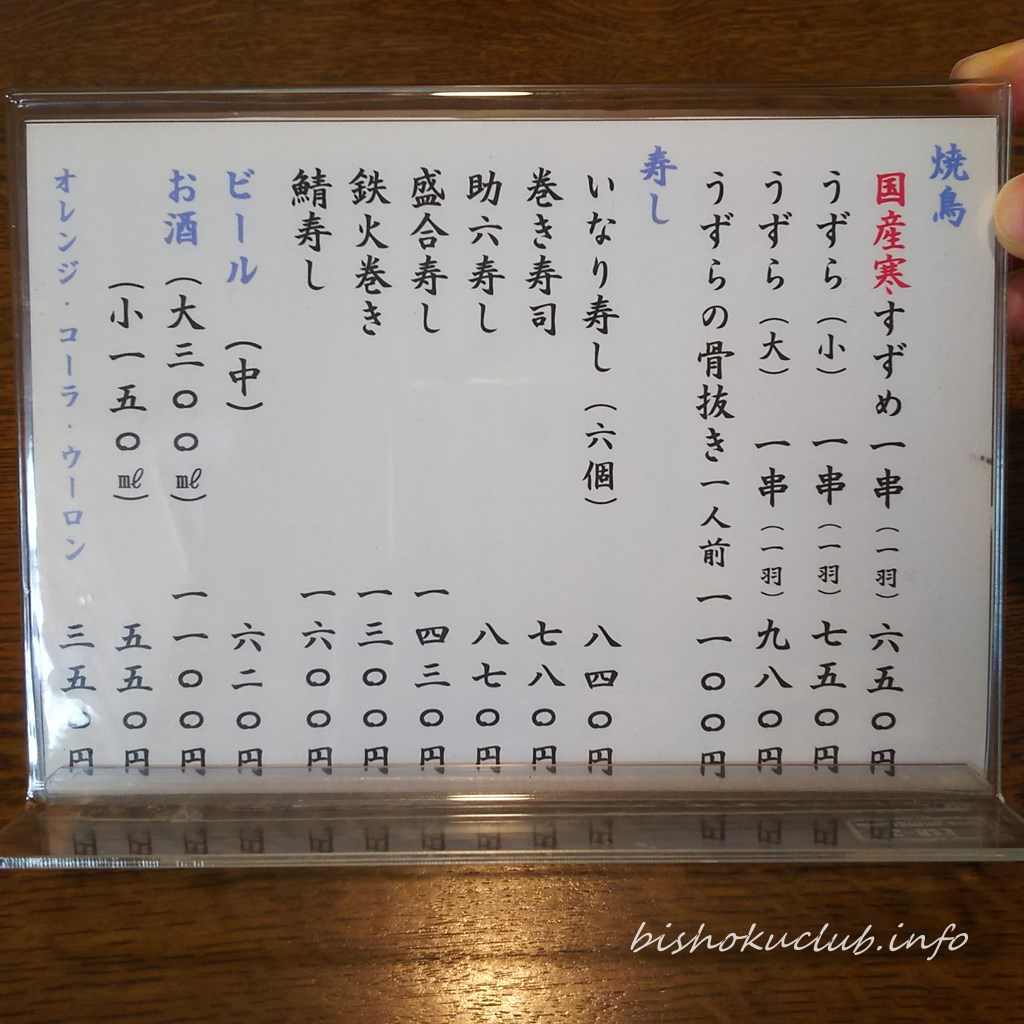 焼鳥
国産寒すずめ 一串(一羽) 六五〇円
うずら(小) 一串(一羽) 七五〇円
うずら(大) 一串(一羽) 九八〇円
うずらの骨抜き一人前 一一〇〇円
寿し
いなり寿し(六個) 八四〇円
巻き寿司 七八〇円
助六寿し 八七〇円
盛合寿し 一四三〇円
鉄火巻き 一三〇〇円
鯖寿し 一六〇〇円
ビール (中) 六二〇円
お酒 (大三〇〇㎖) 一一〇〇円
(小一五〇㎖) 五五〇円
オレンジ・コーラ・ウーロン 三五〇円
bishokuclub.info